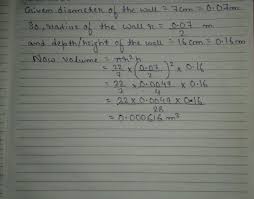 Given diameter of the wall = 7cm = 0.07m
So, radius of the wall r = 0.07/2 m
and depth/height of the wall = 16cm = 0.16m
Now volume = πr²h
= 22/7 × (0.07/2)² × 0.16
= 22/7 × 0.0049/4 × 0.16
= 22 × 0.0049 × 0.16/28
= 0.000616 m³